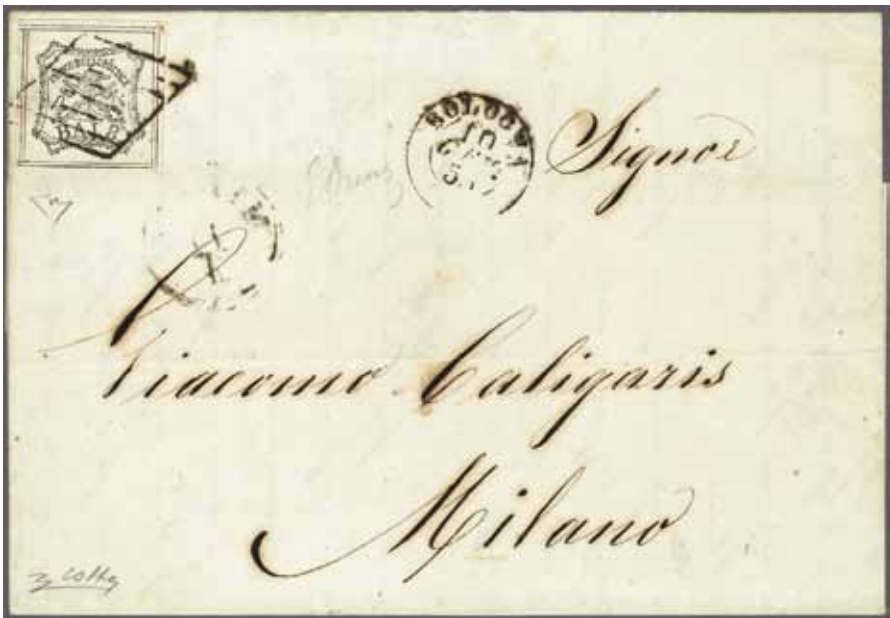 BAJ 8
BOLOGNA
10
Signor
Giacomo Caligaris
Milano